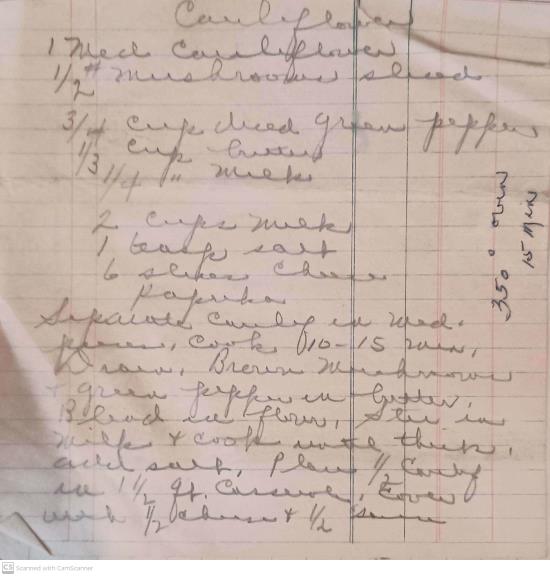 Cauliflower
1 Med Cauliflower
1/2 # Mushrooms sliced
3/4 cup diced green pepper
1/3 cup butter
1/4 " Milk
2 cups Milk
1 teasp salt
6 slices Cheese
Paprika
350° oven
15 Min
Separate Caulif in Med.
pieces, Cook 10-15 min,
Drain, Brown Mushrooms
+ green pepper in butter,
Blend in flour, Stir in
Milk + cook until thick,
add salt, Place 1/2 Caulif
in 1 1/2 qt. Casserole, Cover
with 1/2 cheese + 1/2 sauce
CS Scanned with CamScanner